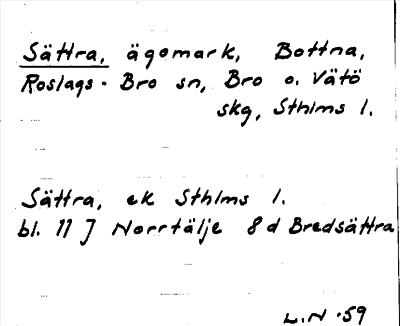 Sättra, ägomark, Bottna,
Roslags-Bro sn, Bro o. Vätö
skg, Sthlms l.
Sättra, ek Sthlms l.
bl. 11 J Norrtälje 8 d Bredsättra
L.N -59